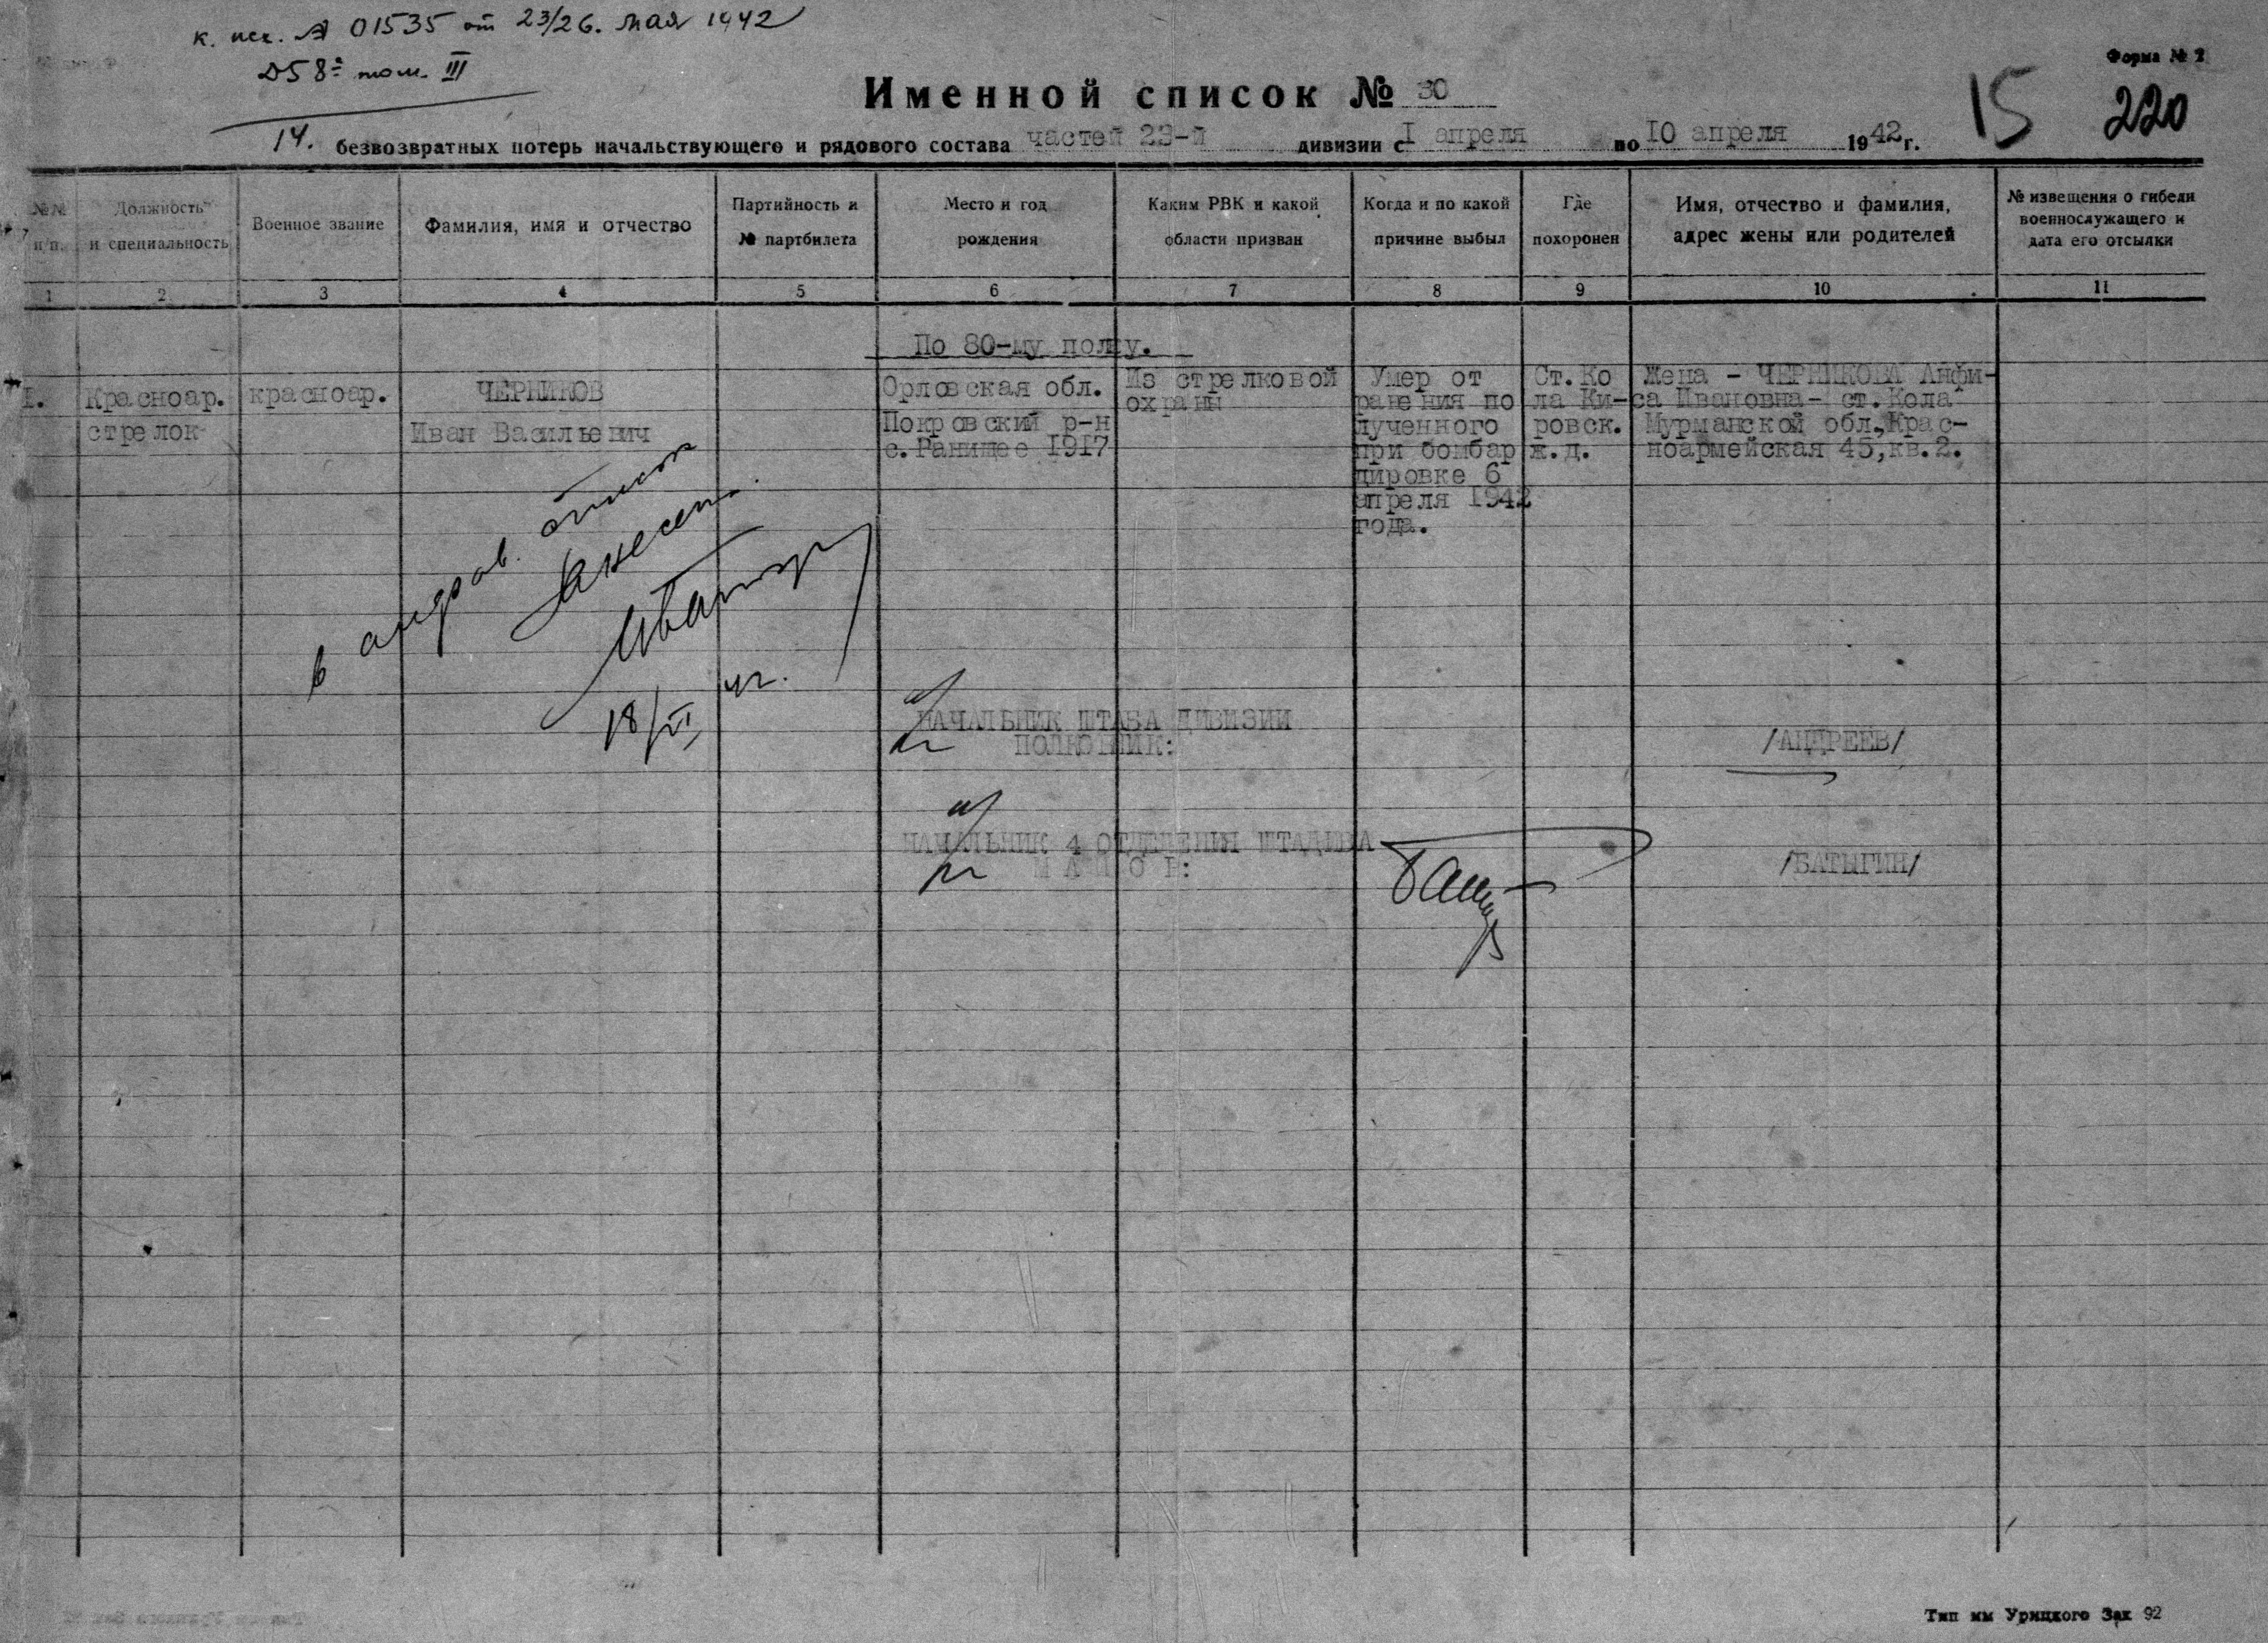 к. исх. № 01535 от 23/26. мая 1942
14.
Форма № 2
15 220
Именной список № 30
безвозвратных потерь начальствующего и рядового состава частей 23-й дивизии с I апреля по I0 апреля 1942 г.
№№ п/п.
Должность и специальность
Военное звание
Фамилия, имя и отчество
Партийность и № партбилета
Место и год рождения
Каким РВК и какой области призван
Когда и по какой причине выбыл
Где похоронен
Имя, отчество и фамилия, адрес жены или родителей
№ извещения о гибели военнослужащего и дата его отсылки
1 2 3 4 5 6 7 8 9 10 11
По 80-му полку.
I.
Красноар.
стрелок
красноар.
ЧЕРНИКОВ
Иван Васильевич
Орловская обл.
Покровский р-н
с. Ранищее 1917
Из стрелковой
охраны
Умер от
ранения по
лученного
при бомбар
дировке 6
апреля 1942
года.
Ст. Ко
ла Ки-
ровск.
ж.д.
Жена - ЧЕРНИКОВА Анфи-
са Ивановна- ст. Кола
Мурманской обл., Крас-
ноармейская 45, кв. 2.
18/VI 42.
НАЧАЛЬНИК ШТАБА ДИВИЗИИ
ПОЛКОВНИК:
/АНДРЕЕВ/
НАЧАЛЬНИК 4 ОТДЕЛЕНИЯ ШТАДИВА
М А Й О Р:
/БАТЫГИН/
Тип им Урицкого Зак 92